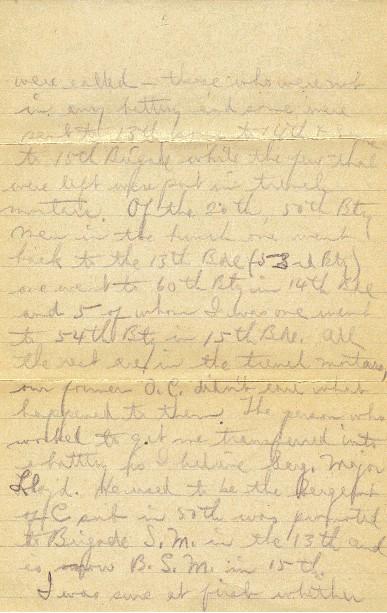 were called — those who were not
in any battery and some were
sent to 13th some to 14th & some
to 15th Brigade while the few that
were left were put in trench
mortars. Of the 20th, 50th Bty
men in the bunch one went
back to the 13th Bde (53rd Bty)
one went to 60th Bty in 14th Bde
and 5 of whom I was one went
to 54th Bty in 15th Bde. All
the rest are in the trench mortars,
our former O.C. didn't care what
happened to them. The person who
worked to get me transferred into
a battery is I believe Serg. Major
Lloyd. He used to be the Sergeant
of C sub in 50th was promoted
to Brigade S.M. in the 13th and
is now B.S.M. in 15th.
I was sure at first whether